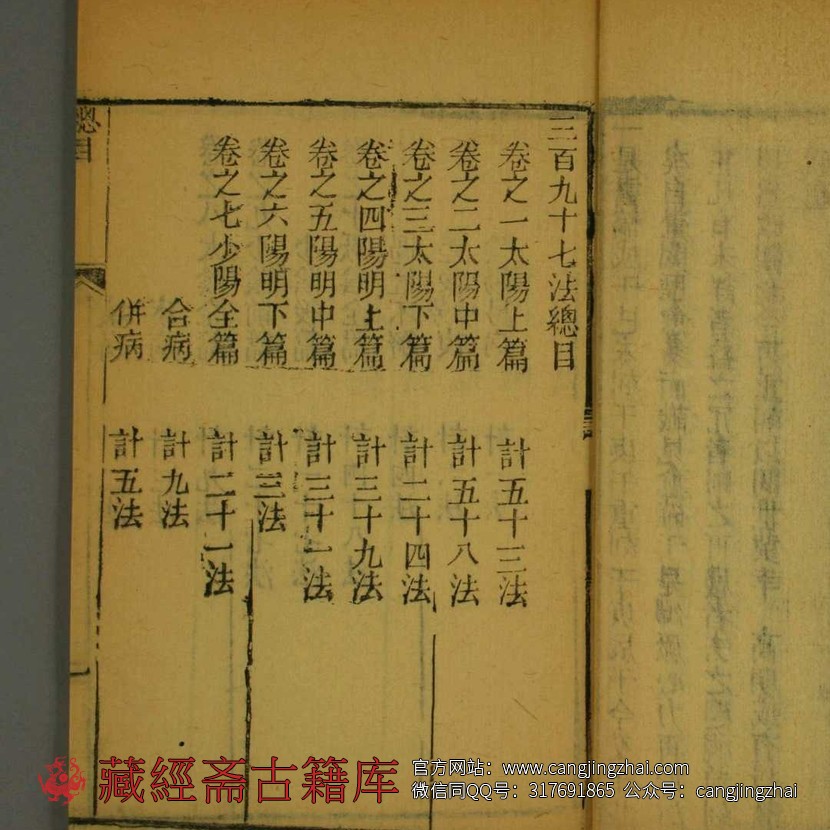 三百九十七法總目
卷之一太陽上篇 計五十三法
卷之二太陽中篇 計五十八法
卷之三太陽下篇 計二十四法
卷之四陽明上篇 計三十九法
卷之五陽明中篇 計三十一法
卷之六陽明下篇 計三法
卷之七少陽全篇 計二十一法
合病 計九法
併病 計五法
總目
一
藏經斋古籍库
官方网站：www.cangjingzhai.com
微信同QQ号：317691865 公众号：cangjingzhai